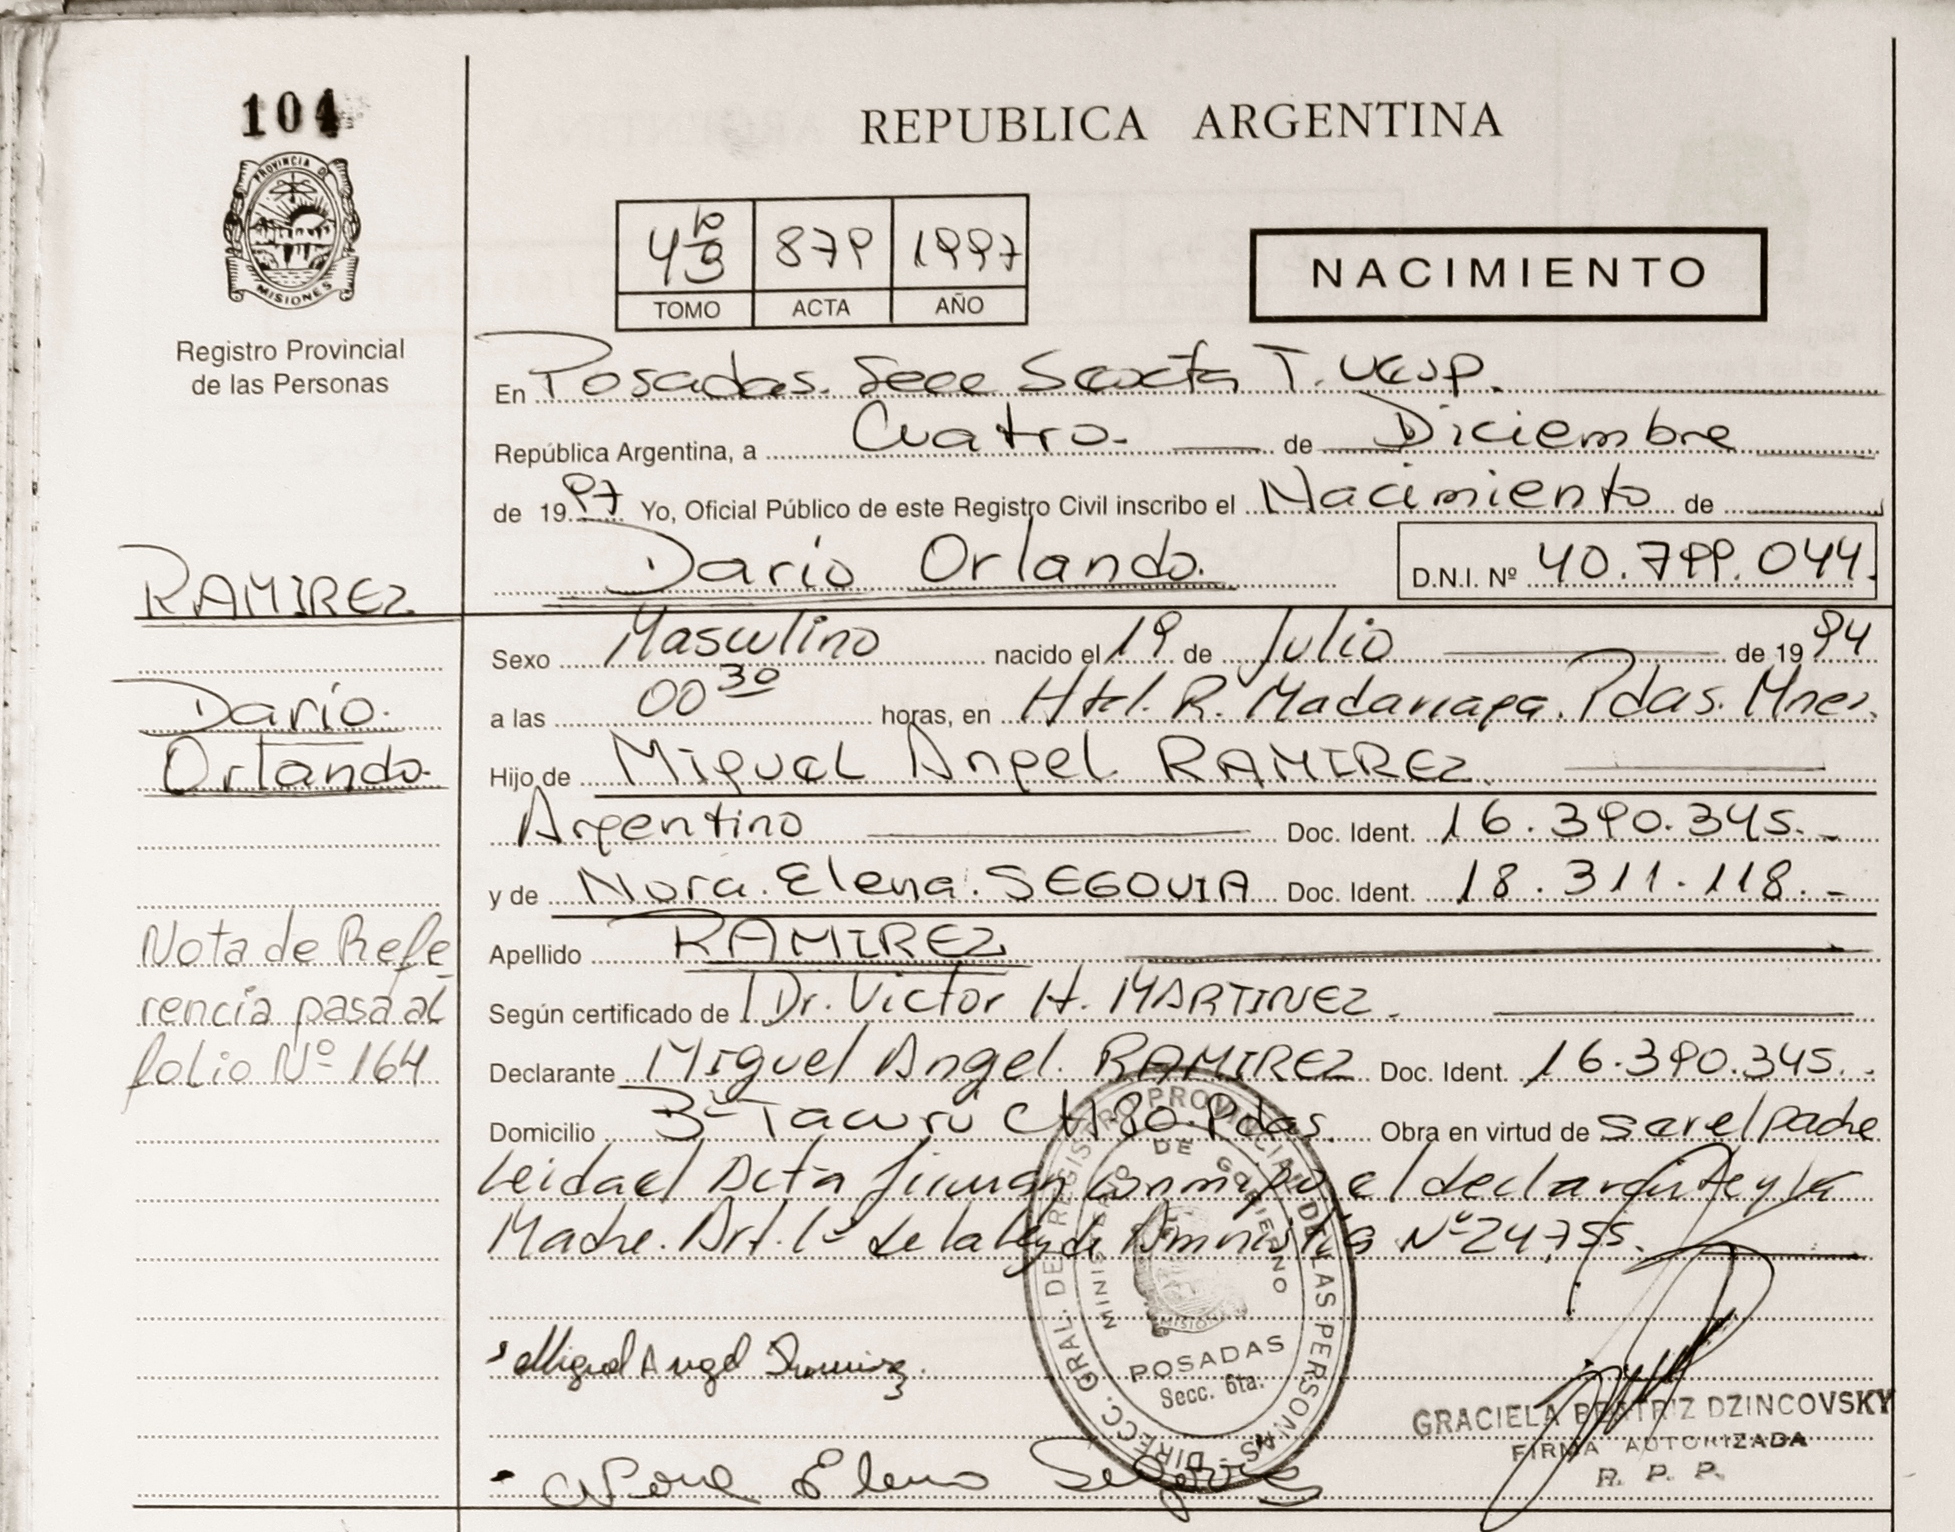 104
PROVINCIA DE
MISIONES
Registro Provincial
de las Personas
REPUBLICA ARGENTINA
4 879 1997
TOMO ACTA AÑO
NACIMIENTO
En Posadas. Secc Sexta T.
República Argentina, a Cuatro. de Diciembre
de 1997 Yo, Oficial Público de este Registro Civil inscribo el Nacimiento de
Darío Orlando. D.N.I. Nº 40.799.044.
RAMIREZ
Darío.
Orlando.
Sexo Masculino nacido el 19 de Julio de 1994
a las 00 30 horas, en Htal. R. Madariaga. Pdas. Mnes.
Hijo de Miguel Angel RAMIREZ.
Argentino Doc. Ident. 16.390.345.-
y de Nora. Elena. SEGOVIA Doc. Ident. 18.311.118.-
Apellido RAMIREZ
Según certificado de Dr. Victor H. MARTINEZ.
Declarante Miguel Angel. RAMIREZ Doc. Ident. 16.390.345.
Domicilio Bº Tacurú CH180. Pdas. Obra en virtud de ser el padre
Leida el Acta firman conmigo el declarante y la
Madre. Art. 1º de la Ley de Amnistía Nº 24.755.
Nota de Refe
rencia pasa al
folio Nº 164
Miguel Angel Ramirez.
Nora Elena Segovia
DIRECC. GRAL. DE REGISTRO PROVINCIAL DE LAS PERSONAS
MINISTERIO DE GOBIERNO
MISIONES
POSADAS
Secc. 6ta.
GRACIELA BEATRIZ DZINCOVSKY
FIRMA AUTORIZADA
R. P. P.